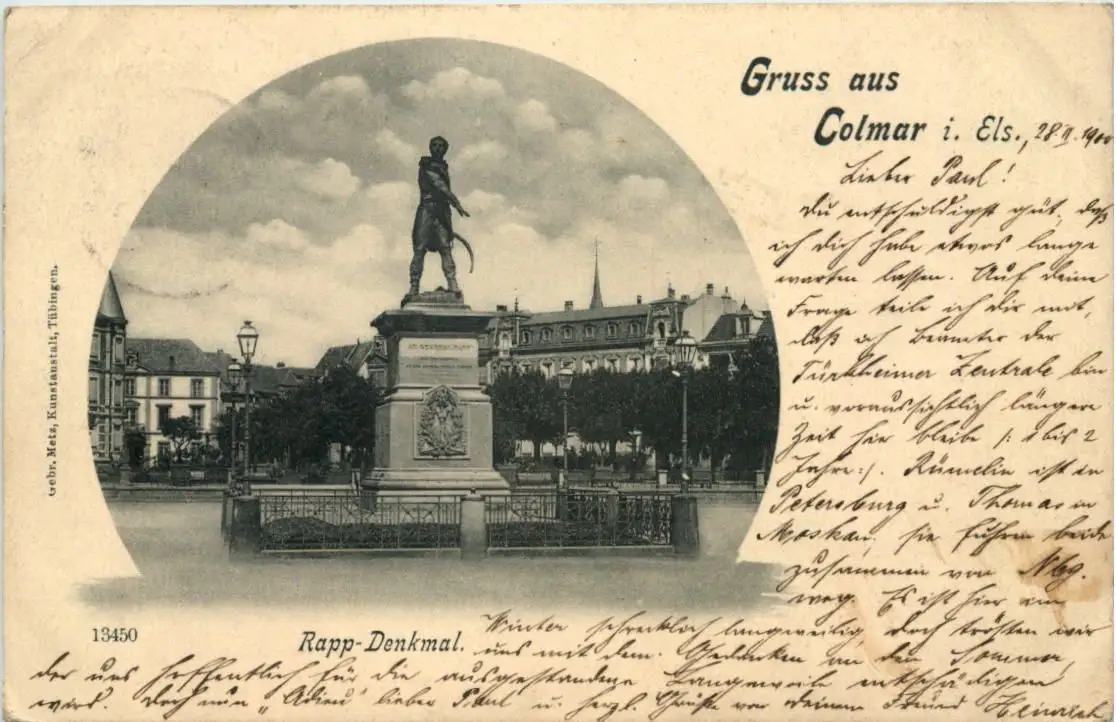 Gruss aus
Colmar i. Els., 28. II. 1900
Lieber Paul!
Du entschuldigst gut, daß
ich Dich habe etwas lange
warten lassen. Auf Deine
Frage teile ich Dir mit,
daß ich Beamter der
Türkheimer Zentrale bin
u. voraussichtlich längere
Zeit hier bleibe /: 1 bis 2
Jahre :/. Rümelin ist in
Petersburg u. Thomas in
Moskau. sie fuhren beide
zusammen von Nbg.
weg. Es ist hier im
Winter schrecklich langweilig, doch trösten wir
uns mit dem Gedanken an den Sommer,
der uns hoffentlich für die ausgestandene Langeweile entschädigen
wird. Doch nun „Adieu" lieber Paul u. herzl. Grüße von Deinem Freund Heinrich
Rapp-Denkmal.
13450
Gebr. Metz, Kunstanstalt, Tübingen.